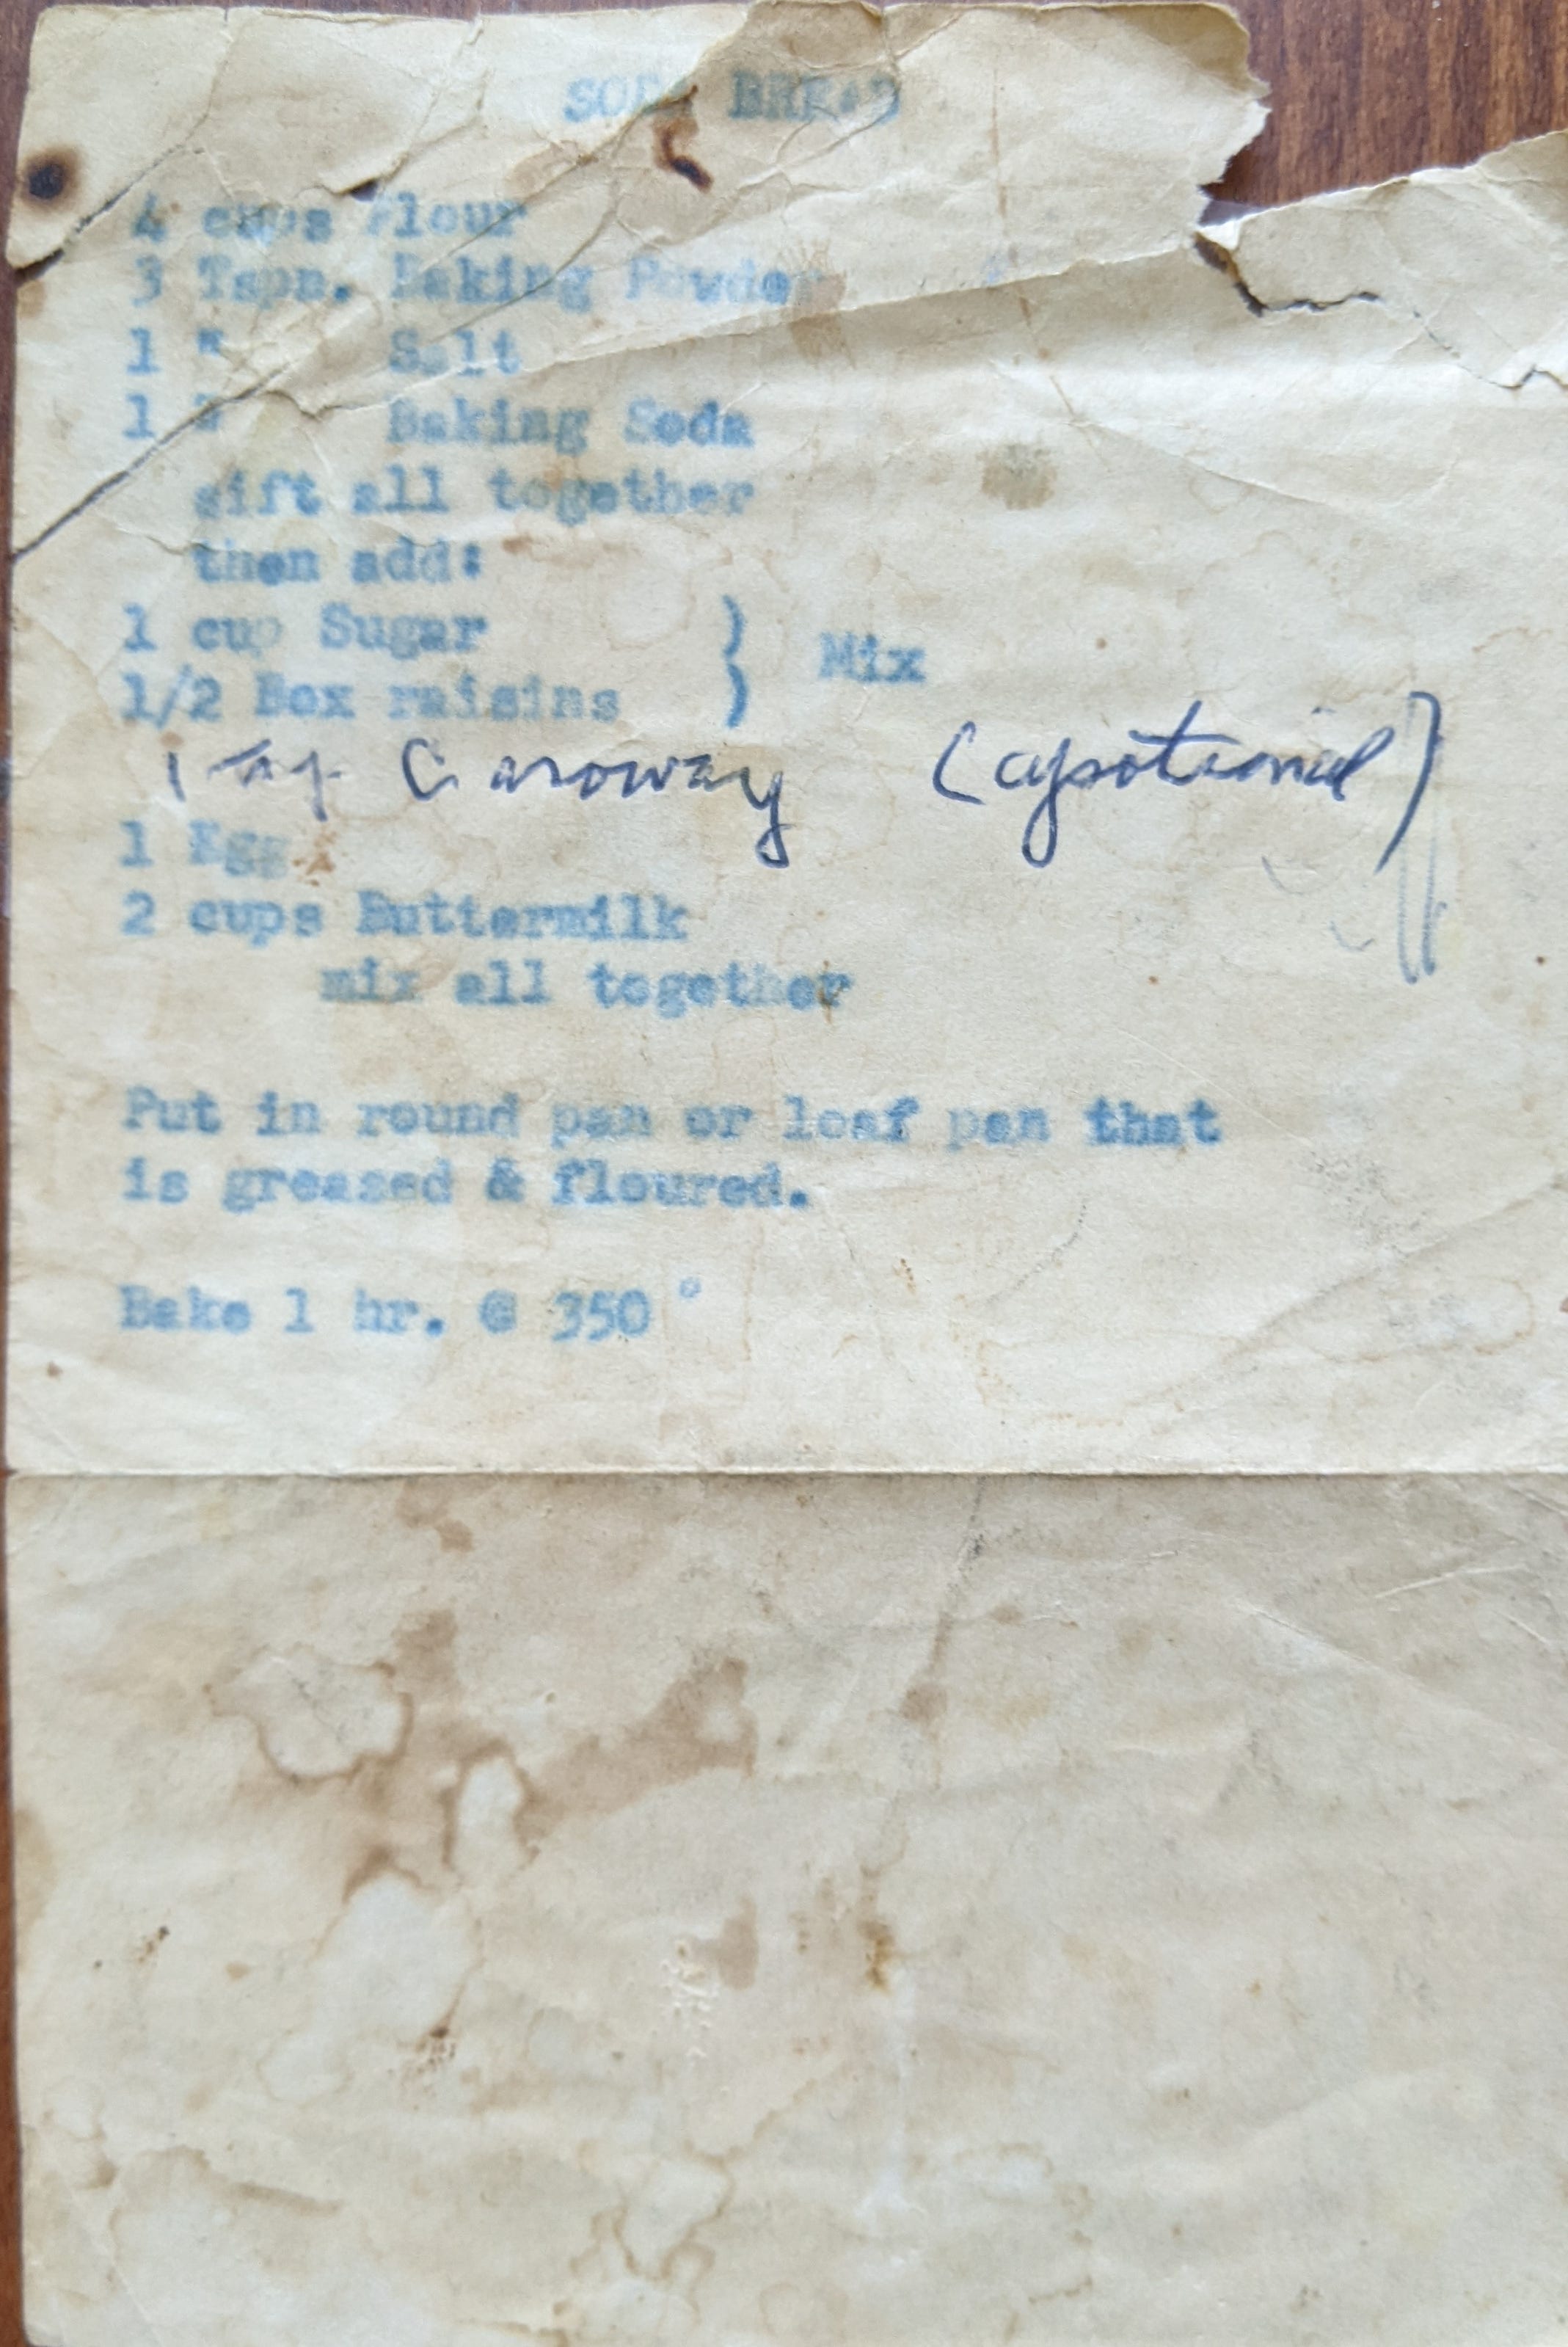 SODA BREAD
4 cups flour
3 Tspn. Baking Powder
1 " Salt
1 " Baking Soda
sift all together
then add:
1 cup Sugar
1/2 Box raisins } Mix
1 Tsp. Caroway (opotional)
1 Egg
2 cups Buttermilk
mix all together
Put in round pan or loaf pan that
is greased & floured.
Bake 1 hr. @ 350°